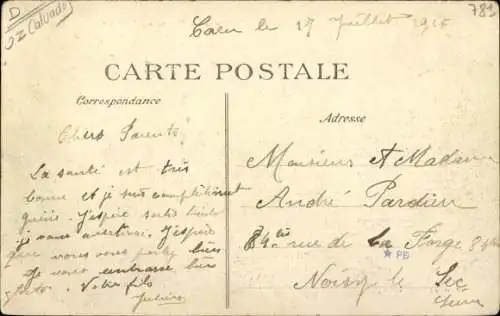 D
02 Calvados
Caen le 17 Juillet 191
789
CARTE POSTALE
Correspondance
Adresse
Chers Parents
La santé est très
bonne et je suis complètement
guéris. J'espère sortir
je vous avertirai. J'espère
que vous vous portez bien
Je vous embrasse bien
Votre fils
Monsieur et Madame
André Pardieu
rue de la Forge
PB
Noisy le Sec
Seine